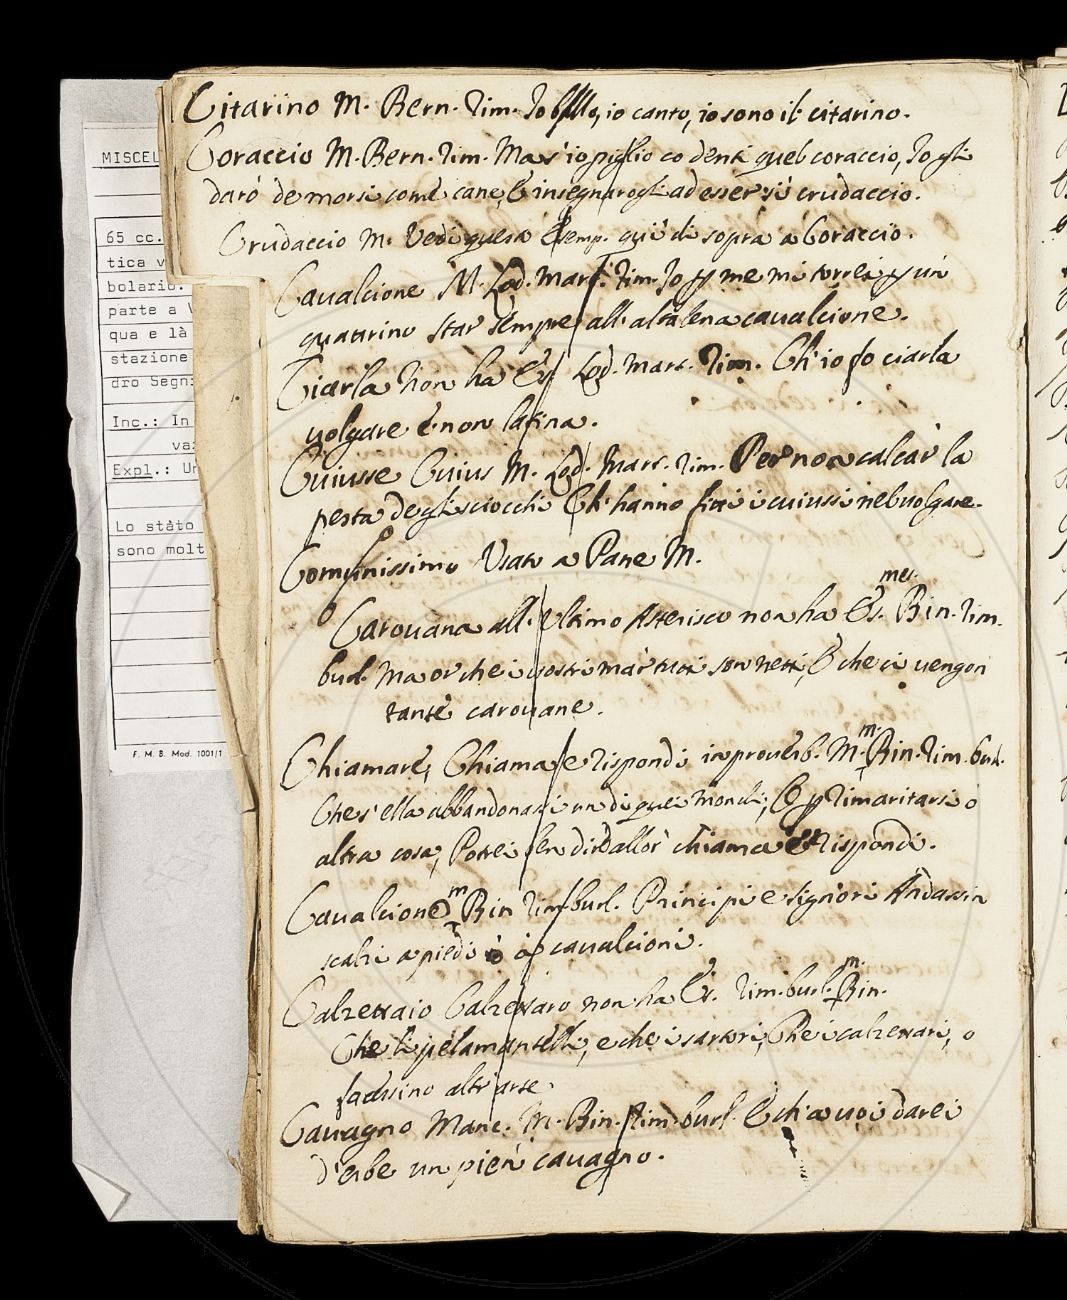 Citarino M. Bern. Rim. Io ballo, io canto, io sono il citarino.
Coraccio M. Bern. Rim. Ma s'io piglio co denti quel coraccio, Io gli
darò de morsi come cane, E insegnarogli ad esser sì crudaccio.
Crudaccio M. Vedi questa Esemp. quì di sopra a Coraccio.
Cavalcione M. Lod. Mart. Rim. Io p me mi torrei p un
quattrino star sempre all'altalena cavalcione.
Ciarla Non ha Es. Lod. Mart. Rim. Ch'io fo ciarla
volgare e non latina.
Cuiusse Cuius M. Lod. Mart. Rim. Per non calcar la
pesta degli sciocchi Ch'hanno fitti i cuiussi nel volgare.
Comunissimo Usato a Pane M.
Carovana all'ultimo Asterisco non ha Es. mer. Bin. Rim.
burl. Ma or che i vostri mar tutti son netti, E che ci vengon
tante carovane.
Chiamare, Chiama e rispondi in proverb. M. m. Bin. Rim. burl.
Che s'ella abbandonassi un di quei monchi, O p rimaritarsi o
altra cosa, Potrei ben dir dallor chiama e rispondi.
Cavalcione m Bin Rim burl. Principi e signori Andassin
scalzi a piedi o a cavalcioni.
Calzettaio Calzettaro non ha Es. Rim. burl. m. Bin.
Che li pelamantelli, e che i sartori, Che i calzettari, o
facessino altr'arte.
Cavagno Manc. M. Bin. Rim. burl. E chi a voi darei
d'erbe un pien cavagno.
MISCEL
65 cc.
tica v
bolario.
parte a V
qua e là
stazione
dro Segni
Inc.: In
vaz
Expl.: Un
Lo stàto
sono molt
F. M. B. Mod. 1001/1